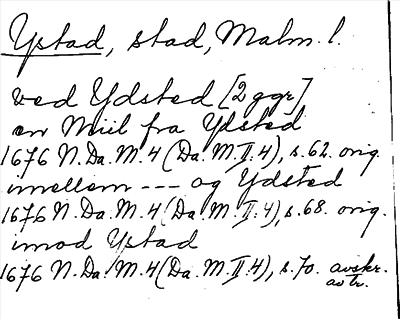 Ystad, stad, Malm. l.
ved Ydsted [2 ggr]
en Miil fra Ydsted
1676 N. Da. M. 4 (Da. M. II. 4), s. 62. orig.
imellem --- og Ydsted
1676 N. Da. M. 4 (Da. M. II. 4), s. 68. orig.
imod Ystad
1676 N. Da. M. 4 (Da. M. II. 4), s. 70. avskr.
avtr.